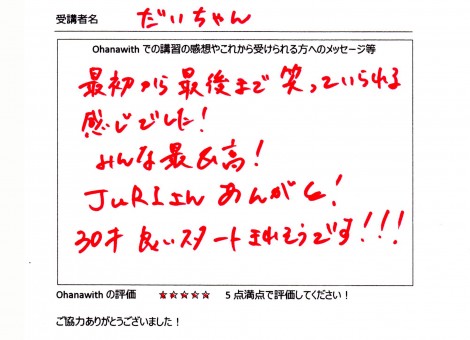 受講者名 だいちゃん
Ohanawith での講習の感想やこれから受けられる方へのメッセージ等
最初から最後まで笑っていられる
感じでした!
みんな最&高!
JURIさん ありがとう!
30才 良いスタートきれそうです!!!
Ohanawith の評価 ☆☆☆☆☆ 5点満点で評価してください!
ご協力ありがとうございました!